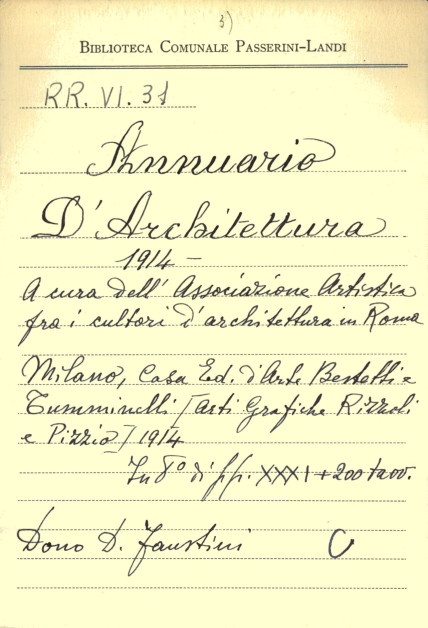 3)
BIBLIOTECA COMUNALE PASSERINI-LANDI
RR. VI. 31
Annuario
D'Architettura
1914 –
A cura dell' Associazione Artistica
fra i cultori d'architettura in Roma
Milano, Casa Ed. d'Arte Bestetti e
Tumminelli [Arti Grafiche Rizzoli
e Pizzio] 1914
In 8° di pp. XXXI + 200 tavv.
Dono D. Faustini